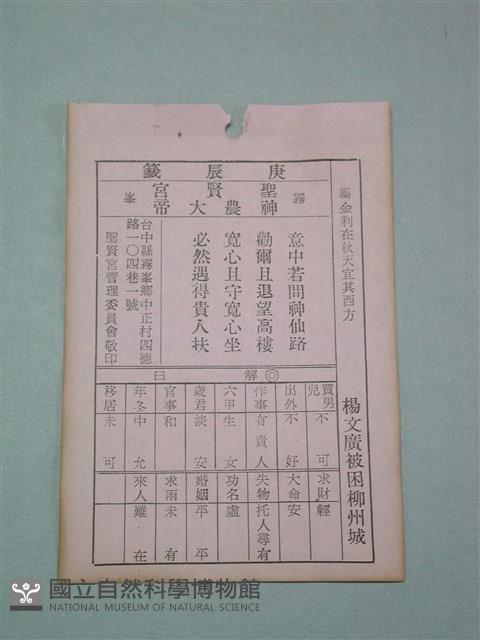 屬金利在秋天宜其西方
楊文廣被困柳州城
庚辰籤
霧峯
聖賢宮
神農大帝
意中若問神仙路
勸爾且退望高樓
寬心且守寬心坐
必然遇得貴人扶
台中縣霧峯鄉中正村四德
路一〇四巷一號
聖賢宮管理委員會敬印
◎解曰
買男兒不可
出外不好
作事有貴人
六甲生女
歲君淡安
官事和
年冬中允
移居未可
求財輕
大命安
失物托人尋有
功名虛
婚姻平平
求雨未有
來人雖在
國立自然科學博物館
NATIONAL MUSEUM OF NATURAL SCIENCE